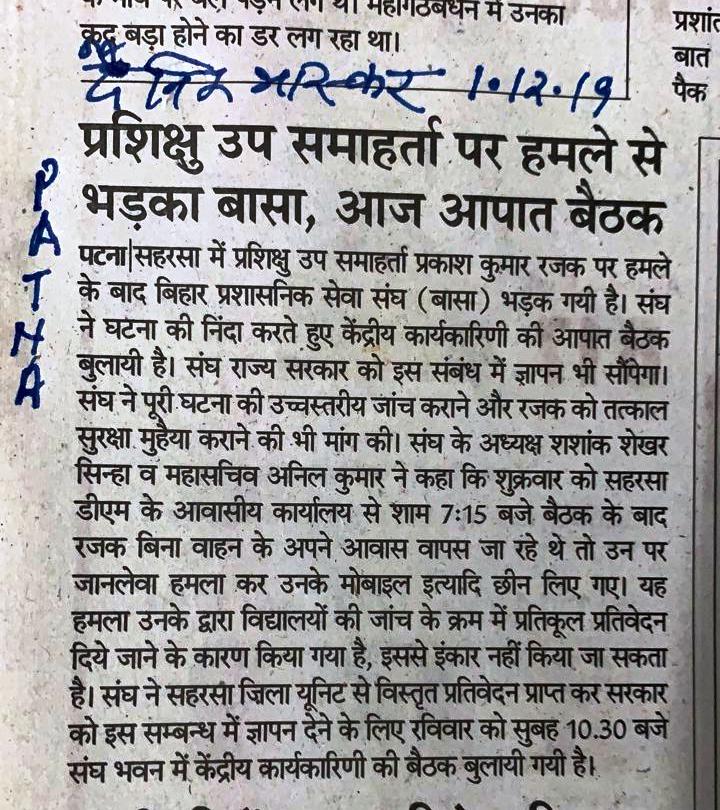 महागठबंधन में उनका
कद बड़ा होने का डर लग रहा था।
दैनिक भास्कर 1.12.19
प्रशिक्षु उप समाहर्ता पर हमले से
भड़का बासा, आज आपात बैठक
PATNA
पटना|सहरसा में प्रशिक्षु उप समाहर्ता प्रकाश कुमार रजक पर हमले
के बाद बिहार प्रशासनिक सेवा संघ (बासा) भड़क गयी है। संघ
ने घटना की निंदा करते हुए केंद्रीय कार्यकारिणी की आपात बैठक
बुलायी है। संघ राज्य सरकार को इस संबंध में ज्ञापन भी सौंपेगा।
संघ ने पूरी घटना की उच्चस्तरीय जांच कराने और रजक को तत्काल
सुरक्षा मुहैया कराने की भी मांग की। संघ के अध्यक्ष शशांक शेखर
सिन्हा व महासचिव अनिल कुमार ने कहा कि शुक्रवार को सहरसा
डीएम के आवासीय कार्यालय से शाम 7:15 बजे बैठक के बाद
रजक बिना वाहन के अपने आवास वापस जा रहे थे तो उन पर
जानलेवा हमला कर उनके मोबाइल इत्यादि छीन लिए गए। यह
हमला उनके द्वारा विद्यालयों की जांच के क्रम में प्रतिकूल प्रतिवेदन
दिये जाने के कारण किया गया है, इससे इंकार नहीं किया जा सकता
है। संघ ने सहरसा जिला यूनिट से विस्तृत प्रतिवेदन प्राप्त कर सरकार
को इस सम्बन्ध में ज्ञापन देने के लिए रविवार को सुबह 10.30 बजे
संघ भवन में केंद्रीय कार्यकारिणी की बैठक बुलायी गयी है।
बात
पैक